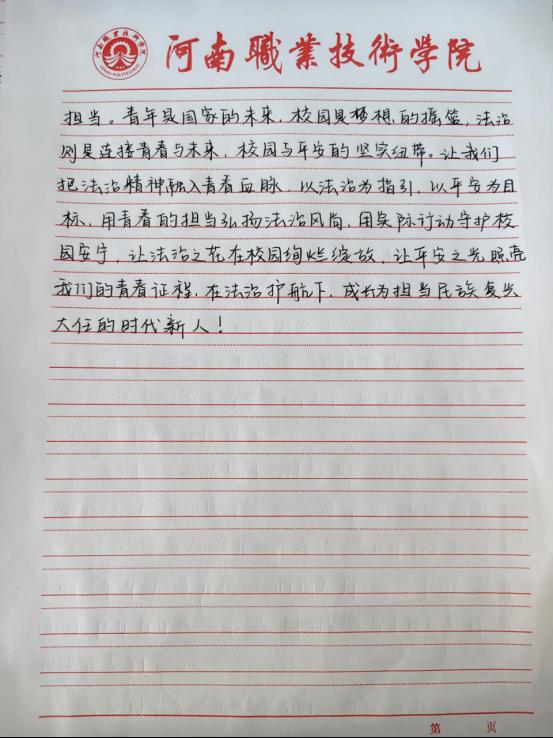 河南職業技術學院
担当。青年是国家的未来，校园是梦想的摇篮，法治
则是连接青春与未来，校园与平安的坚实纽带。让我们
把法治精神融入青春血脉，以法治为指引，以平安为目
标，用青春的担当弘扬法治风尚，用实际行动守护校
园安宁，让法治之花在校园绚烂绽放，让平安之光照亮
我们的青春征程，在法治护航下，成长为担当民族复兴
大任的时代新人！
第 页